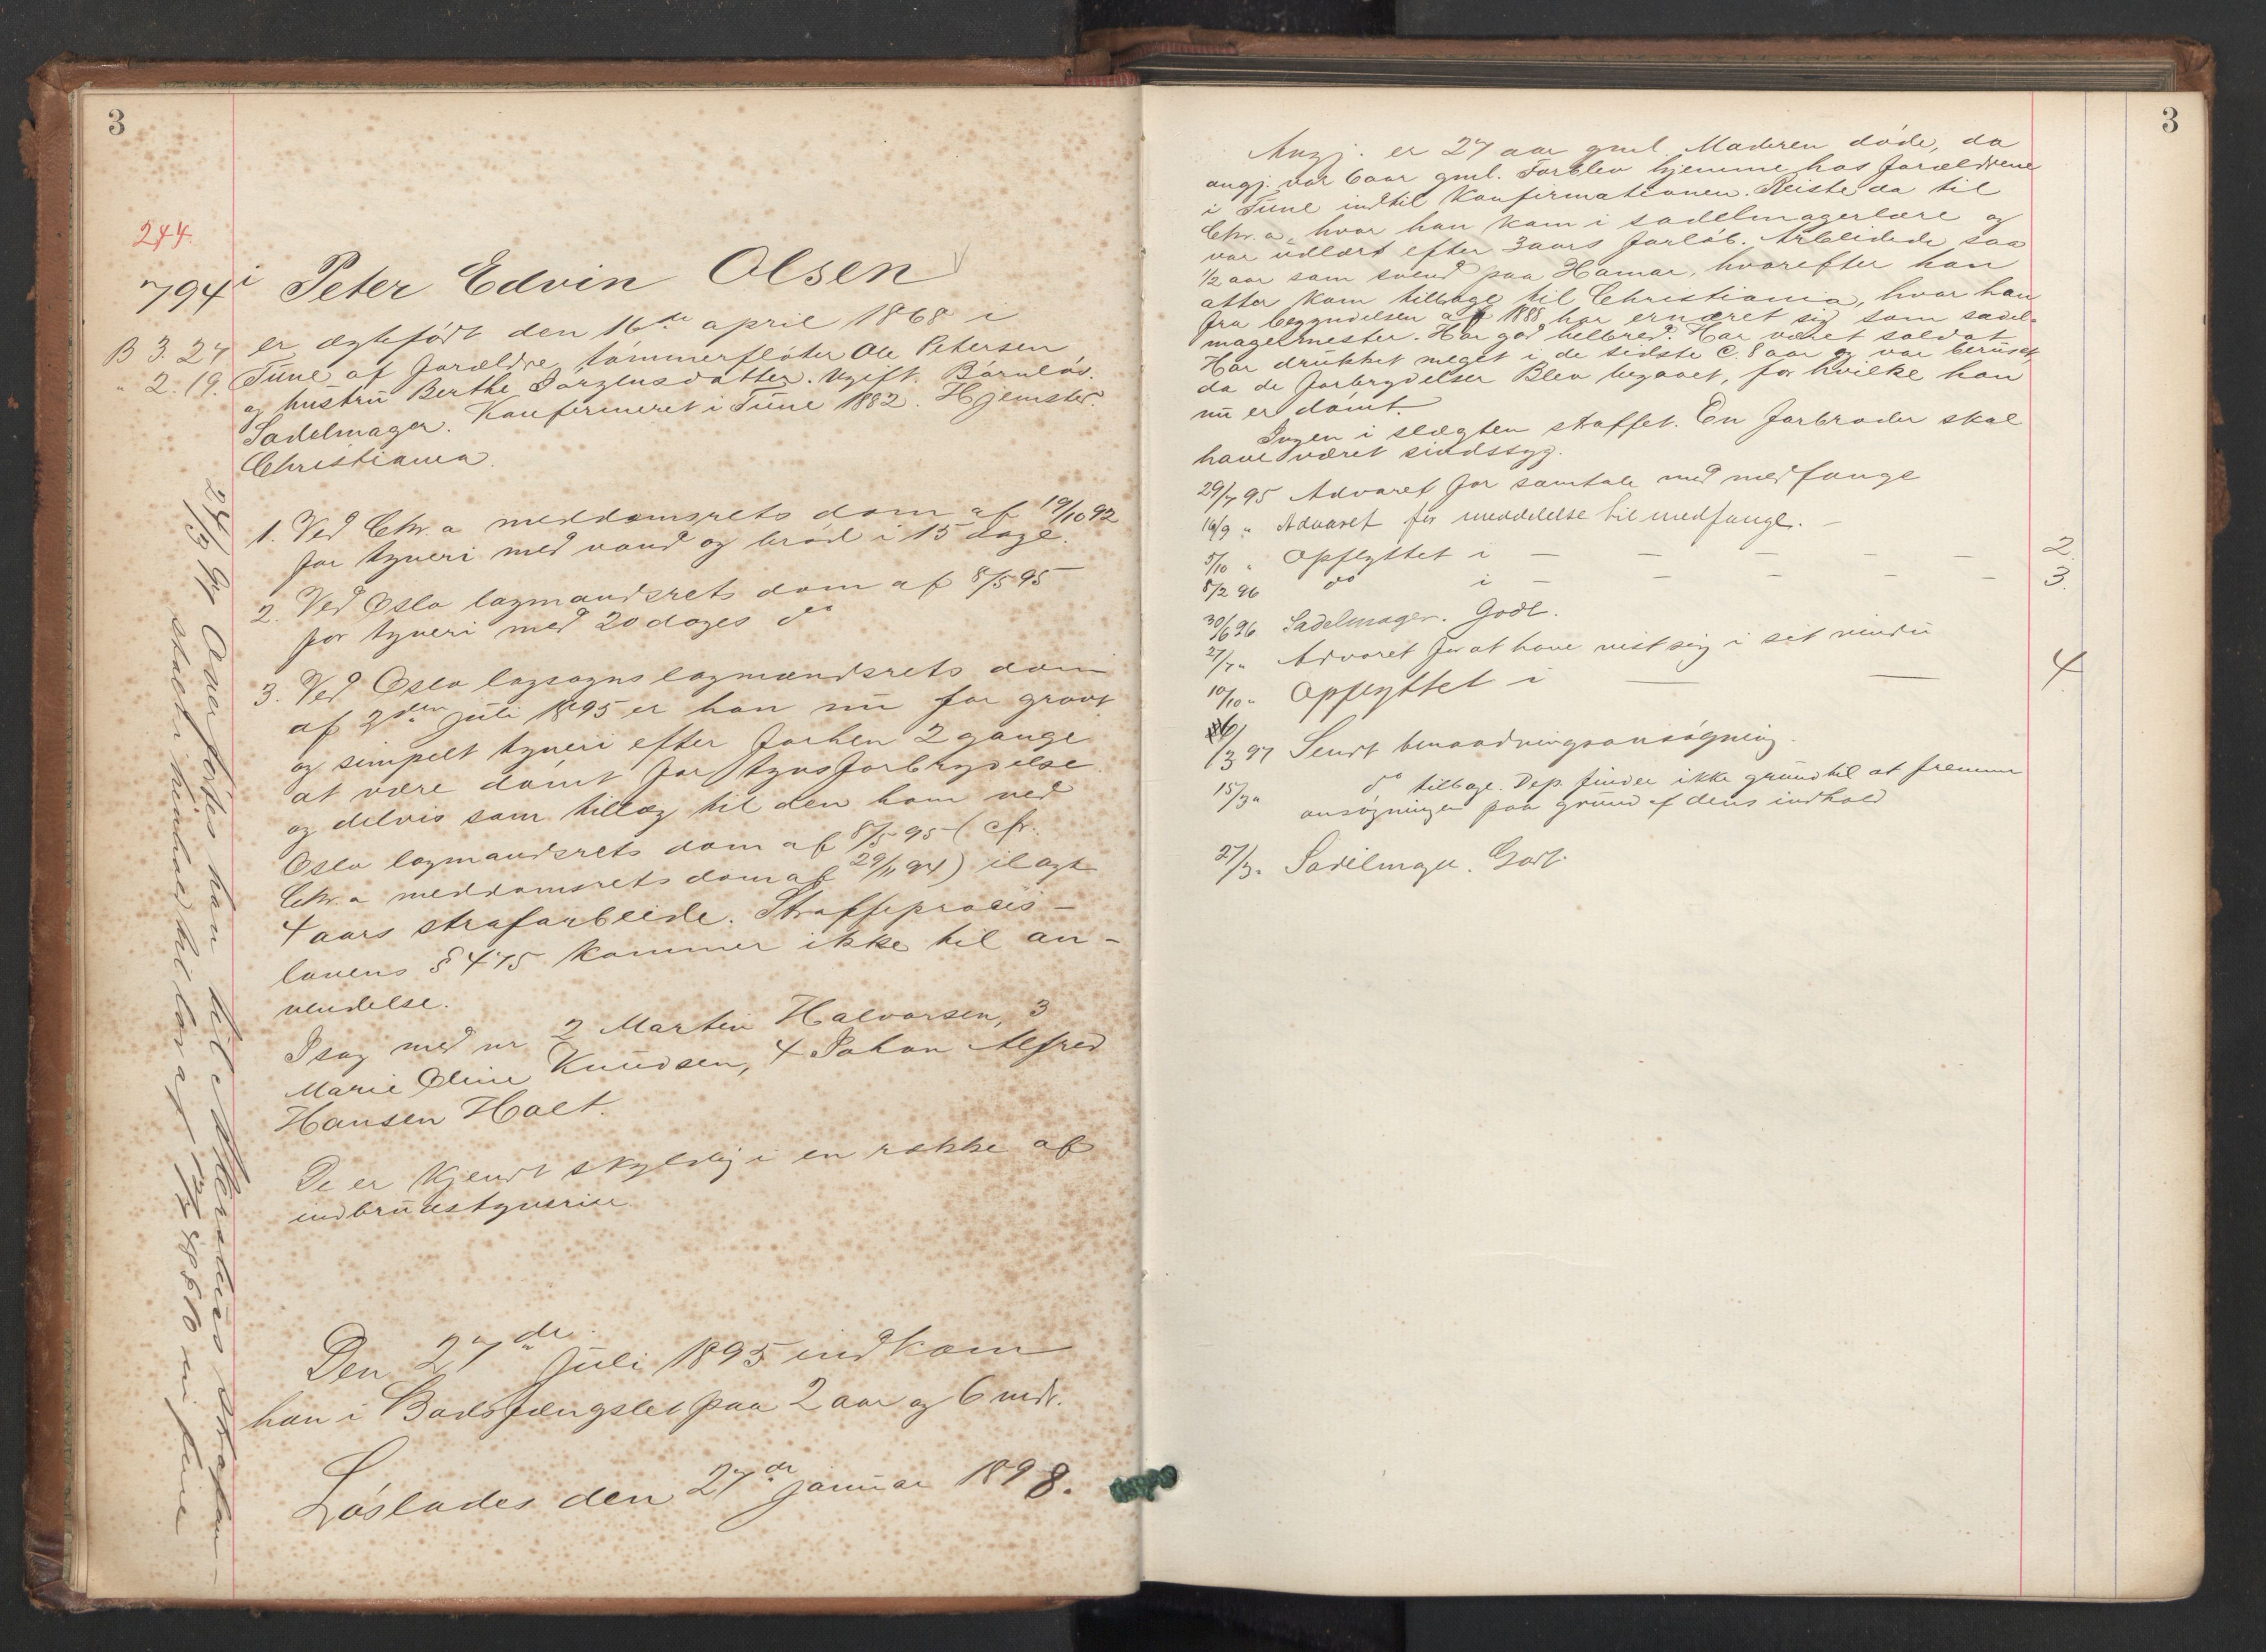 3
244.
794 i Peter Edvin Olsen
B 3. 24 er ægtefödt den 16de april 1868 i
" 2. 19. Tune af forældre, tömmerflöter Ole Petersen
og hustru Berthe Jörgensdatter. Ugift. Barnlös.
Sadelmager. Konfirmeret i Tune 1882. Hjemsted:
Christiania.
1. Ved Chr.a meddomsrets dom af 19/10 92
for tyveri med vand og bröd i 15 dage.
2. Ved Oslo lagmandsrets dom af 8/5 95
for tyveri med 20 dages do
3. Ved Oslo lagsogns lagmandsrets dom
af 2den juli 1895 er han nu for grovt
og simpelt tyveri efter forhen 2 gange
at være dömt for tyvsforbrydelse
og delvis som tillæg til den ham ved
Oslo lagmandsrets dom af 8/5 95 (cfr.
Chr.a meddomsrets dom af 29/11 94) ilagt
4 aars strafarbeide. Straffeproces-
lovens § 475 kommer ikke til an-
vendelse.
I sag med nr 2 Martin Halvorsen, 3
Marie Oline Knudsen, 4 Johan Alfred
Hansen Holt.
De er kjendt skyldig i en række af
indbrudstyverier.
Den 27de juli 1895 indkom
han i Bodsfængslet paa 2 aar og 6 mdr.
Löslades den 27de januar 1898.
Overförtes han til Akershus strafan-
stalt i henhold til lov af in fine
3
Angj. er 27 aar gml. Moderen döde, da
angj. var 6 aar gml. Forblev hjemme hos forældrene
i Tune indtil konfirmationen. Reiste da til
Chr.a, hvor han kom i sadelmagerlære og
var udlært efter 3 aars forlöb. Arbeidede saa
1/2 aar som svend paa Hamar, hvorefter han
atter kom tilbage til Christiania, hvor han
fra begyndelsen af 1888 har ernæret sig som sadel-
magermester. Har god helbred. Har været soldat.
Har drukket meget i de sidste c. 8 aar og var beruset
da de forbrydelser blev begaaet, for hvilke han
nu er dömt.
Ingen i slægten straffet. En farbroder skal
have været sindssyg.
29/7 95 Advaret for samtale med medfange
16/9 " Advaret for meddelelse til medfange. -
5/10 " Opflyttet i - - - - - 2.
8/2 96 do i - - - - - 3.
30/6 96 Sadelmager. Godt.
27/7 " Advaret for at have vist sig i sit vindu
10/10 " Opflyttet i — — 4.
6/3 97 Sendt benaadningsansögning.
15/3 " do tilbage. Dep. finder ikke grund til at fremme
ansögningen paa grund af dens indhold
27/3 " Sadelmager. Godt.